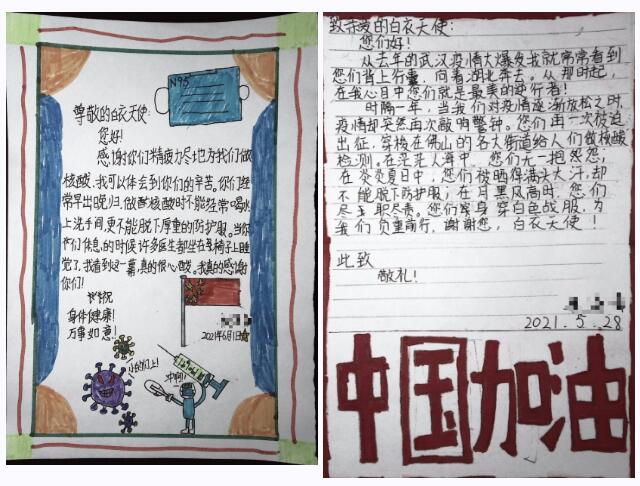 N95
尊敬的白衣天使:
您好!
感谢你们精疲力尽地为我们做
核酸,我可以体会到你们的辛苦。你们经
常早出晚归,做核酸时不能经常喝水
上洗手间,更不能脱下厚重的防护服。当你
们休息的时候许多医生都坐在椅子上睡
觉了,我看到这一幕,真的很心酸。我真的感谢
你们!
祝
身体健康!
万事如意!
2021年6月1日
小的们上!
冲啊!
致亲爱的白衣天使:
您们好!
从去年的武汉疫情大爆发我就常常看到
您们背上行囊,向着湖北奔去。从那时起,
在我心目中您们就是最美的逆行者!
时隔一年,当我们对疫情逐渐放松之时,
疫情却突然再次敲响警钟。您们再一次被迫
出征,穿梭在佛山的各大街道给人们做核酸
检测。在茫茫人海中,您们无一抱怨怨,
在炎炎夏日中,您们被晒得满头大汗,却
不能脱下防护服;在月黑风高时,您们
尽主职尽责。您们穿身穿白色战服,为
我们负重前行,谢谢您,白衣天使!
此致
敬礼!
2021.5.28
中国加油